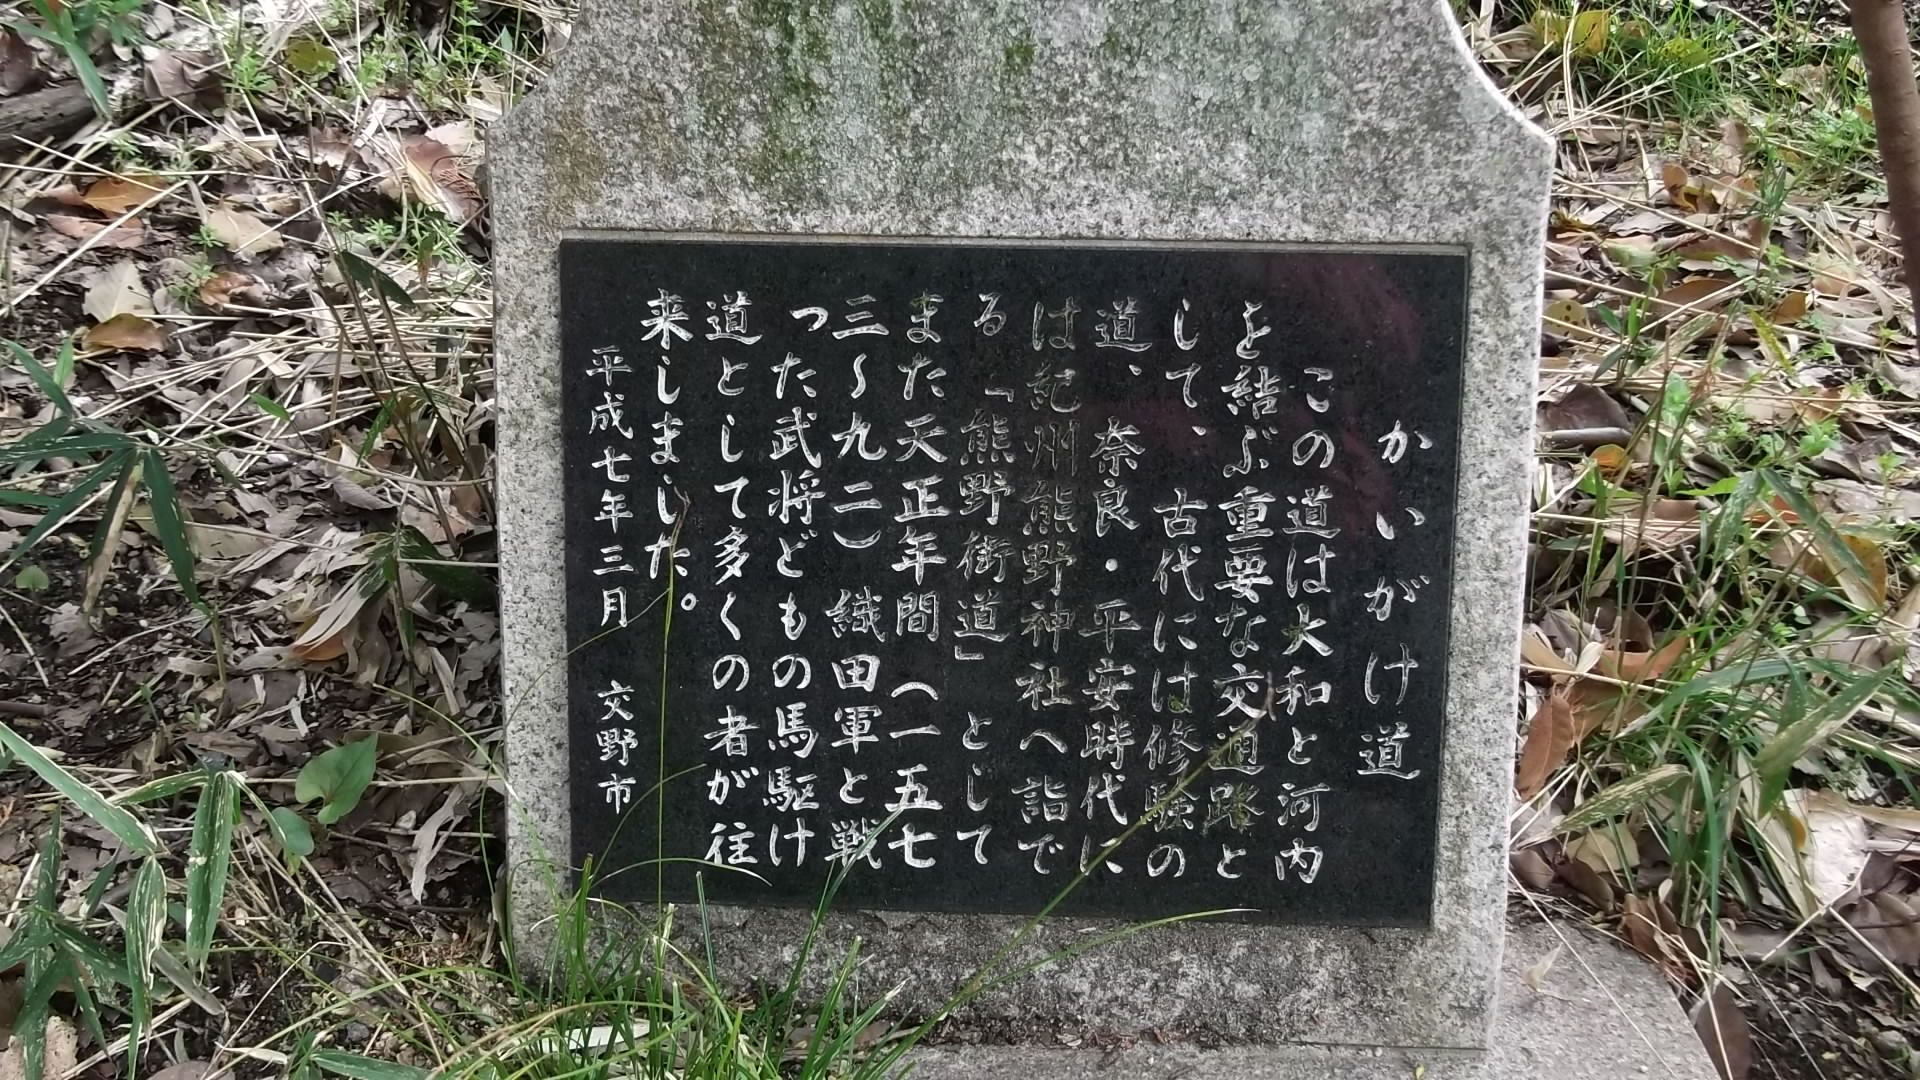 かいがけ道
この道は大和と河内
を結ぶ重要な交通路と
して、古代には修験の
道、奈良・平安時代に
は紀州熊野神社へ詣で
る「熊野街道」として
また天正年間(一五七
三〜九二)織田軍と戦
った武将どもの馬駆け
道として多くの者が往
来しました。
平成七年三月 交野市